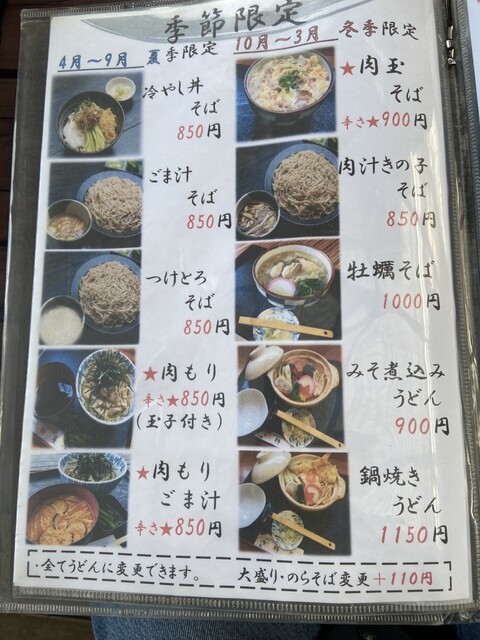 季節限定
4月～9月 夏季限定
冷やし丼
そば
850円
ごま汁
そば
850円
つけとろ
そば
850円
★肉もり
辛さ★850円
(玉子付き)
★肉もり
ごま汁
辛さ★850円
10月～3月 冬季限定
★肉玉
そば
辛さ★900円
肉汁きの子
そば
850円
牡蠣そば
1000円
みそ煮込み
うどん
900円
鍋焼き
うどん
1150円
・全てうどんに変更できます。 大盛り・のらそば変更+110円